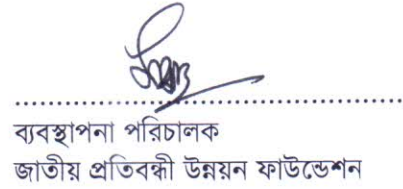 ব্যবস্থাপনা পরিচালক
জাতীয় প্রতিবন্ধী উন্নয়ন ফাউন্ডেশন